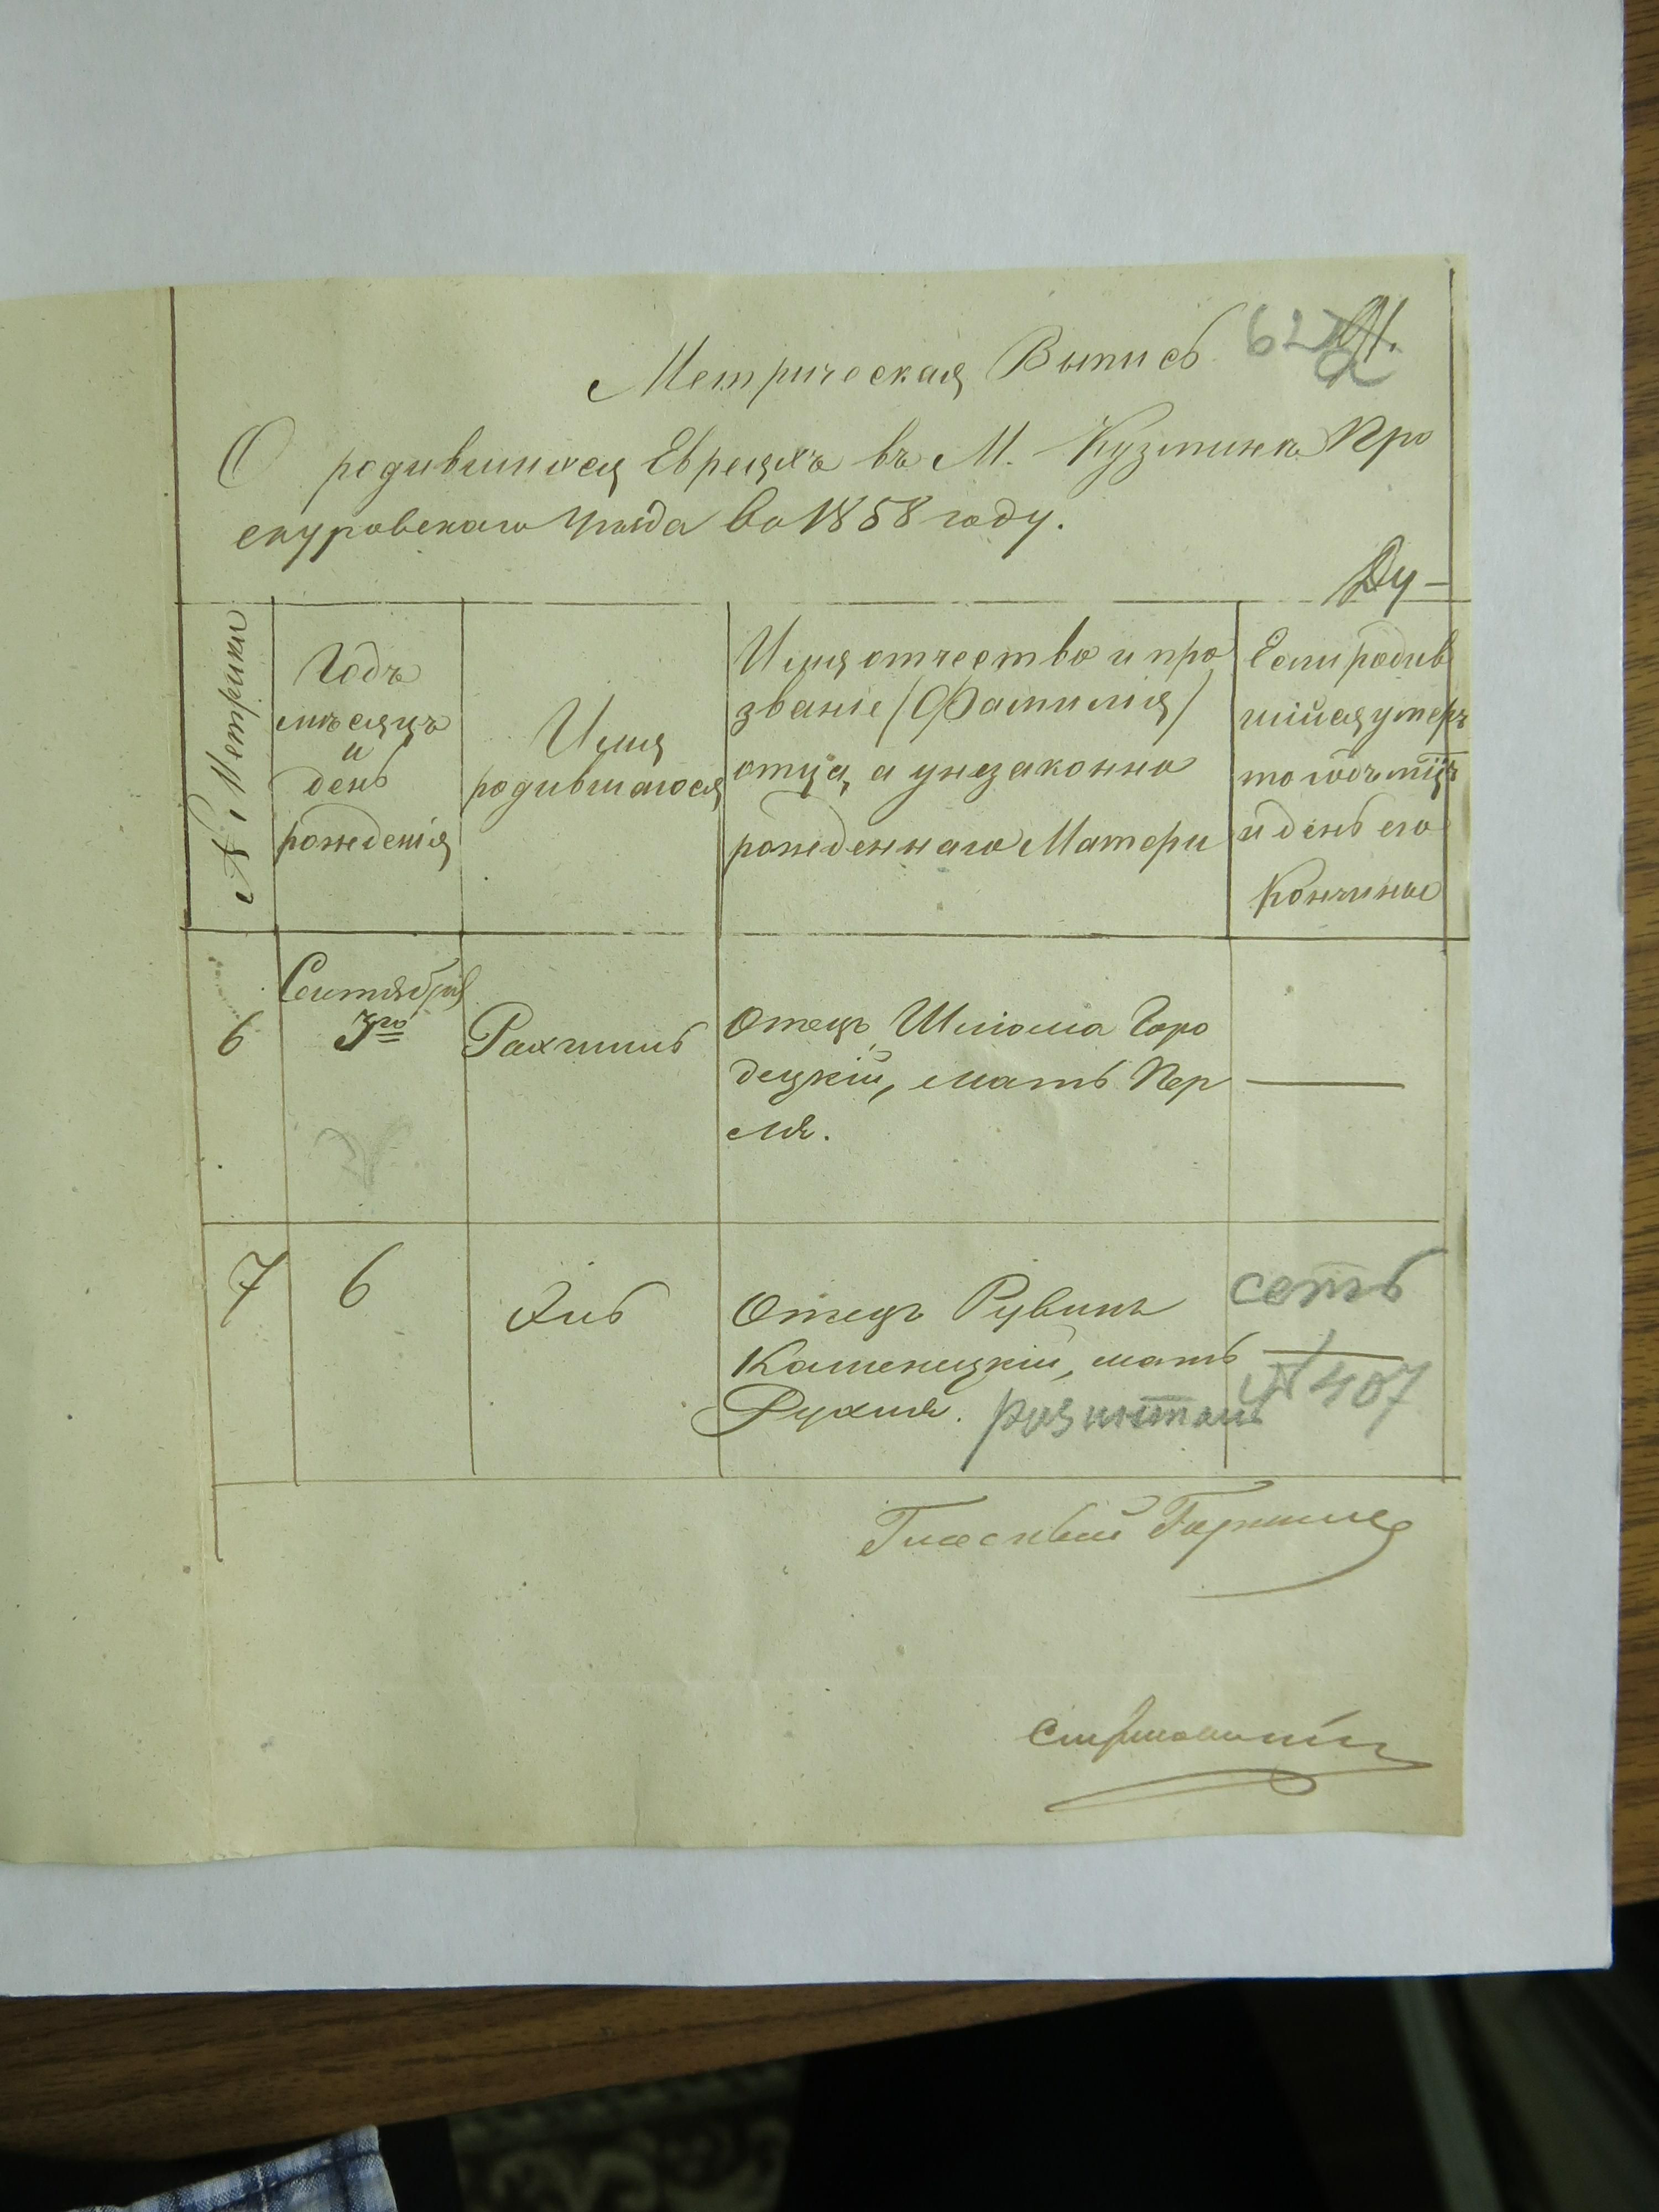 Метрическая Выпись
О родившихся Евреяхъ въ М. Кузминѣ Про
скуровскаго Уѣзда во 1858 году.
Ду-
№ Метрики
Годъ
мѣсяцъ
и
день
рожденія
Имя
родившагося
Имя отчество и про
званіе /Фамилія/
отца, а у незаконно
рожденнаго Матери
Если родив
шійся умеръ
то годъ мцъ
и день его
Кончины
6
Сентября
3го
Рахмиль
Отецъ Шлiома Горо
децкій, мать Пер
ля.
7
6
Отецъ Рувинъ
Каменицкій, мать
Рухля.
есть
№ 407
Гласный